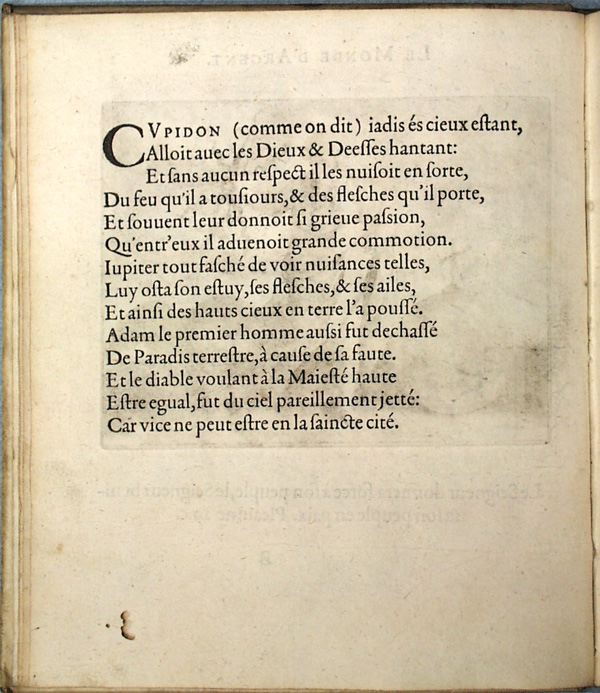 CVPIDON (comme on dit) iadis és cieux eſtant,
Alloit auec les Dieux & Deeſſes hantant:
Et ſans aucun reſpect il les nuiſoit en ſorte,
Du feu qu'il a touſiours, & des fleſches qu'il porte,
Et ſouuent leur donnoit ſi grieue paſsion,
Qu'entr'eux il aduenoit grande commotion.
Iupiter tout faſché de voir nuiſances telles,
Luy oſta ſon eſtuy, ſes fleſches, & ſes ailes,
Et ainſi des hauts cieux en terre l'a pouſſé.
Adam le premier homme auſsi fut dechaſſé
De Paradis terreſtre, à cauſe de ſa faute.
Et le diable voulant à la Maieſté haute
Eſtre egual, fut du ciel pareillement jetté:
Car vice ne peut eſtre en la ſaincte cité.
LE MONDE D'ARGENT.
Le Seigneur donnera force à ſon peuple, le Seigneur
ſon peuple en paix.